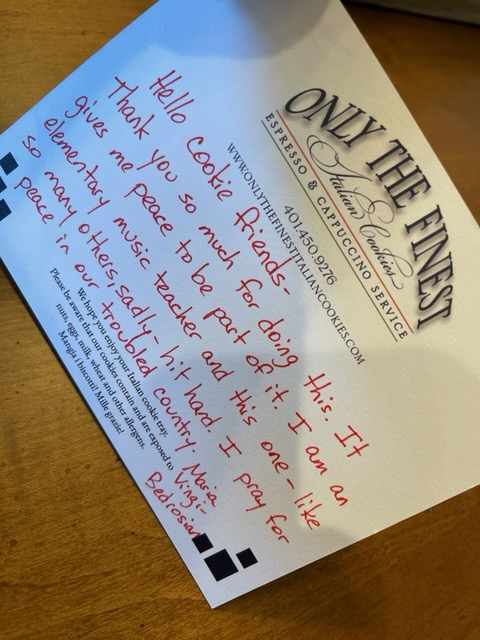 ONLY THE FINEST
Italian Cookies
ESPRESSO & CAPPUCCINO SERVICE
401.450.9276
WWW.ONLYTHEFINESTITALIANCOOKIES.COM
Hello Cookie friends-
Thank you so much for doing this. It
gives me peace to be part of it. I am an
elementary music teacher and this one - like
so many others, sadly - hit hard. I pray for
peace in our troubled country. Maria
Vingi-
Bedrosian
We hope you enjoy your Italian cookie tray.
Please be aware that our cookies contain and are exposed to
nuts, eggs, milk, wheat and other allergens.
Mangia i biscotti! Mille grazie!